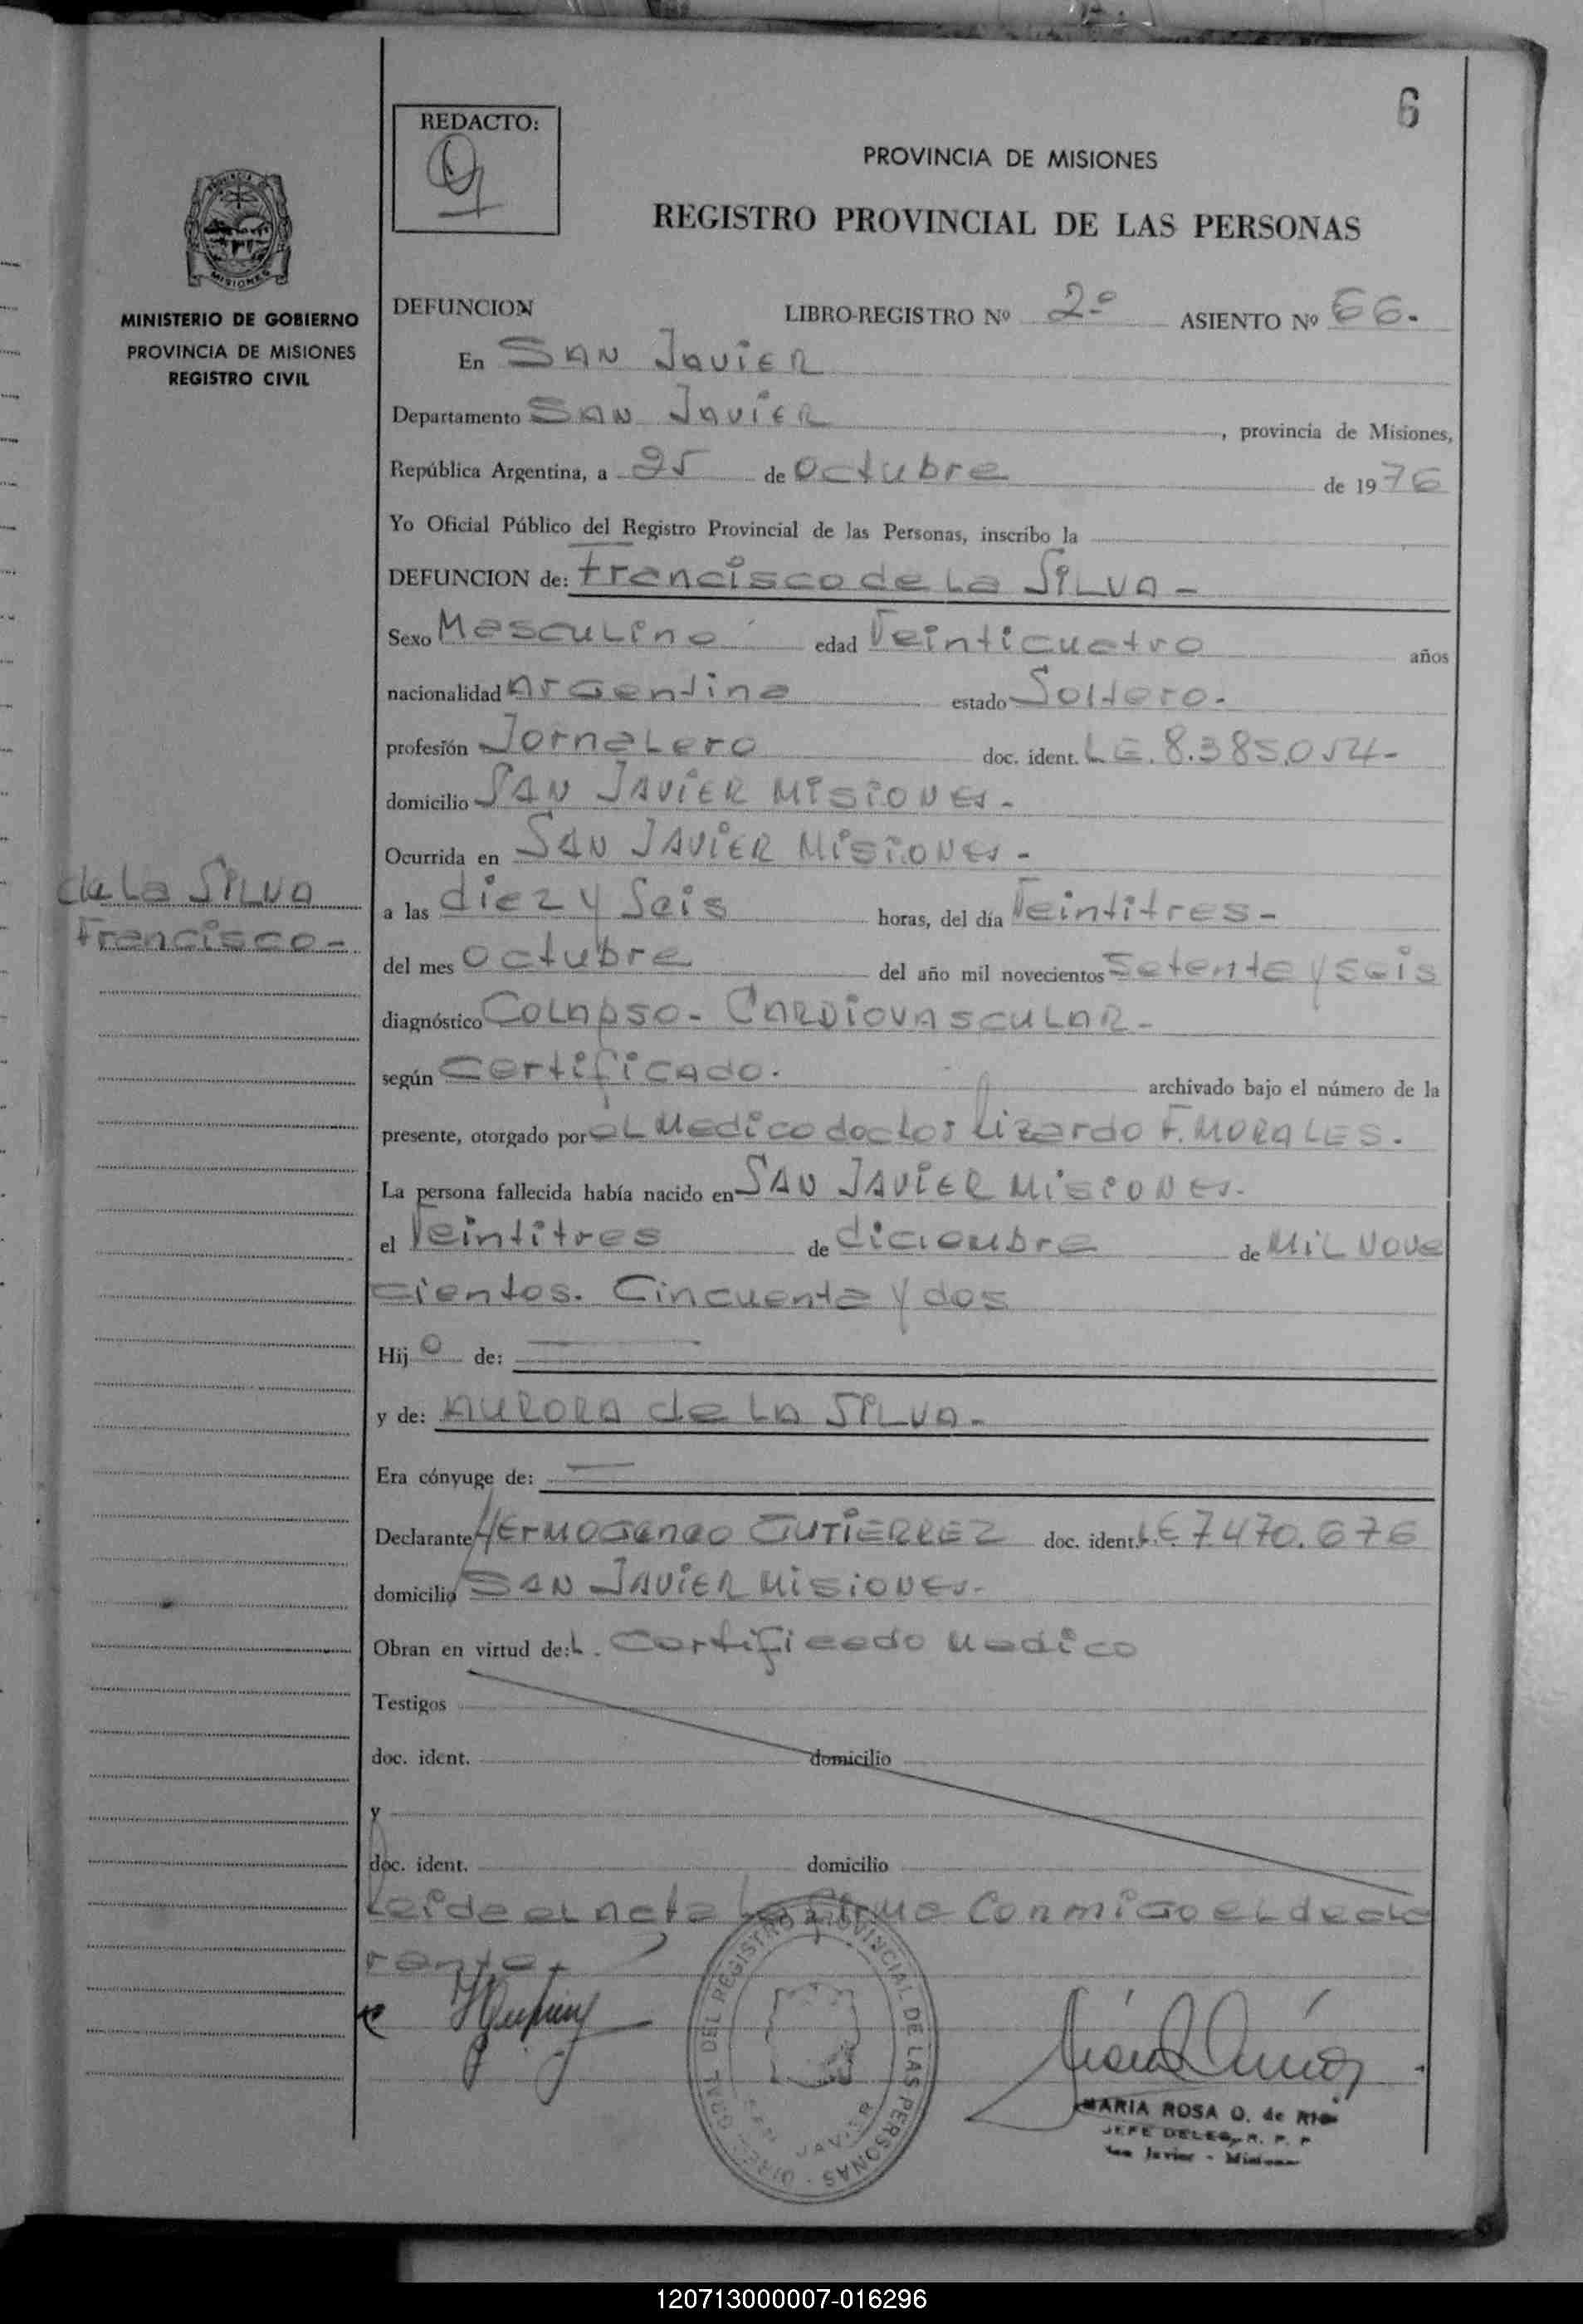 6
REDACTO:
PROVINCIA DE MISIONES
REGISTRO PROVINCIAL DE LAS PERSONAS
MINISTERIO DE GOBIERNO
PROVINCIA DE MISIONES
REGISTRO CIVIL
DEFUNCION LIBRO-REGISTRO Nº 2º ASIENTO Nº 66.
En SAN Javier
Departamento SAN Javier, provincia de Misiones,
República Argentina, a 25 de octubre de 1976
Yo Oficial Público del Registro Provincial de las Personas, inscribo la
DEFUNCION de: Francisco de La SILVA -
Sexo Masculino edad Veinticuatro años
nacionalidad Argentina estado Soltero.
profesión Jornalero doc. ident. LE. 8.385.054-
domicilio SAN JAVIER MISIONES.
Ocurrida en SAN JAVIER MISIONES -
de La SILVA
Francisco -
a las diez y Seis horas, del día Veintitres -
del mes octubre del año mil novecientos Setenta y seis
diagnóstico COLAPSO - CARDIOVASCULAR -
según Certificado. archivado bajo el número de la
presente, otorgado por el Medico doctor Lizardo F. MORALES.
La persona fallecida había nacido en SAN JAVIER MISIONES.
el Veintitres de diciembre de MIL Nove
cientos. Cincuenta y dos
Hijo de:
y de: AURORA de LA SILVA -
Era cónyuge de:
Declarante HERMOGENEO GUTIERREZ doc. ident. LE 7.470.676
domicilio SAN JAVIER MISIONES.
Obran en virtud de: L. Certificado Medico
Testigos
doc. ident. domicilio
y
doc. ident. domicilio
Leida el acta La firma Conmigo el decla
rante.
DIREC. GRAL. DEL REGISTRO PROVINCIAL DE LAS PERSONAS
SAN JAVIER
MARIA ROSA O. de RIOS
JEFE DELEG. R. P. P
San Javier - Misiones
120713000007-016296